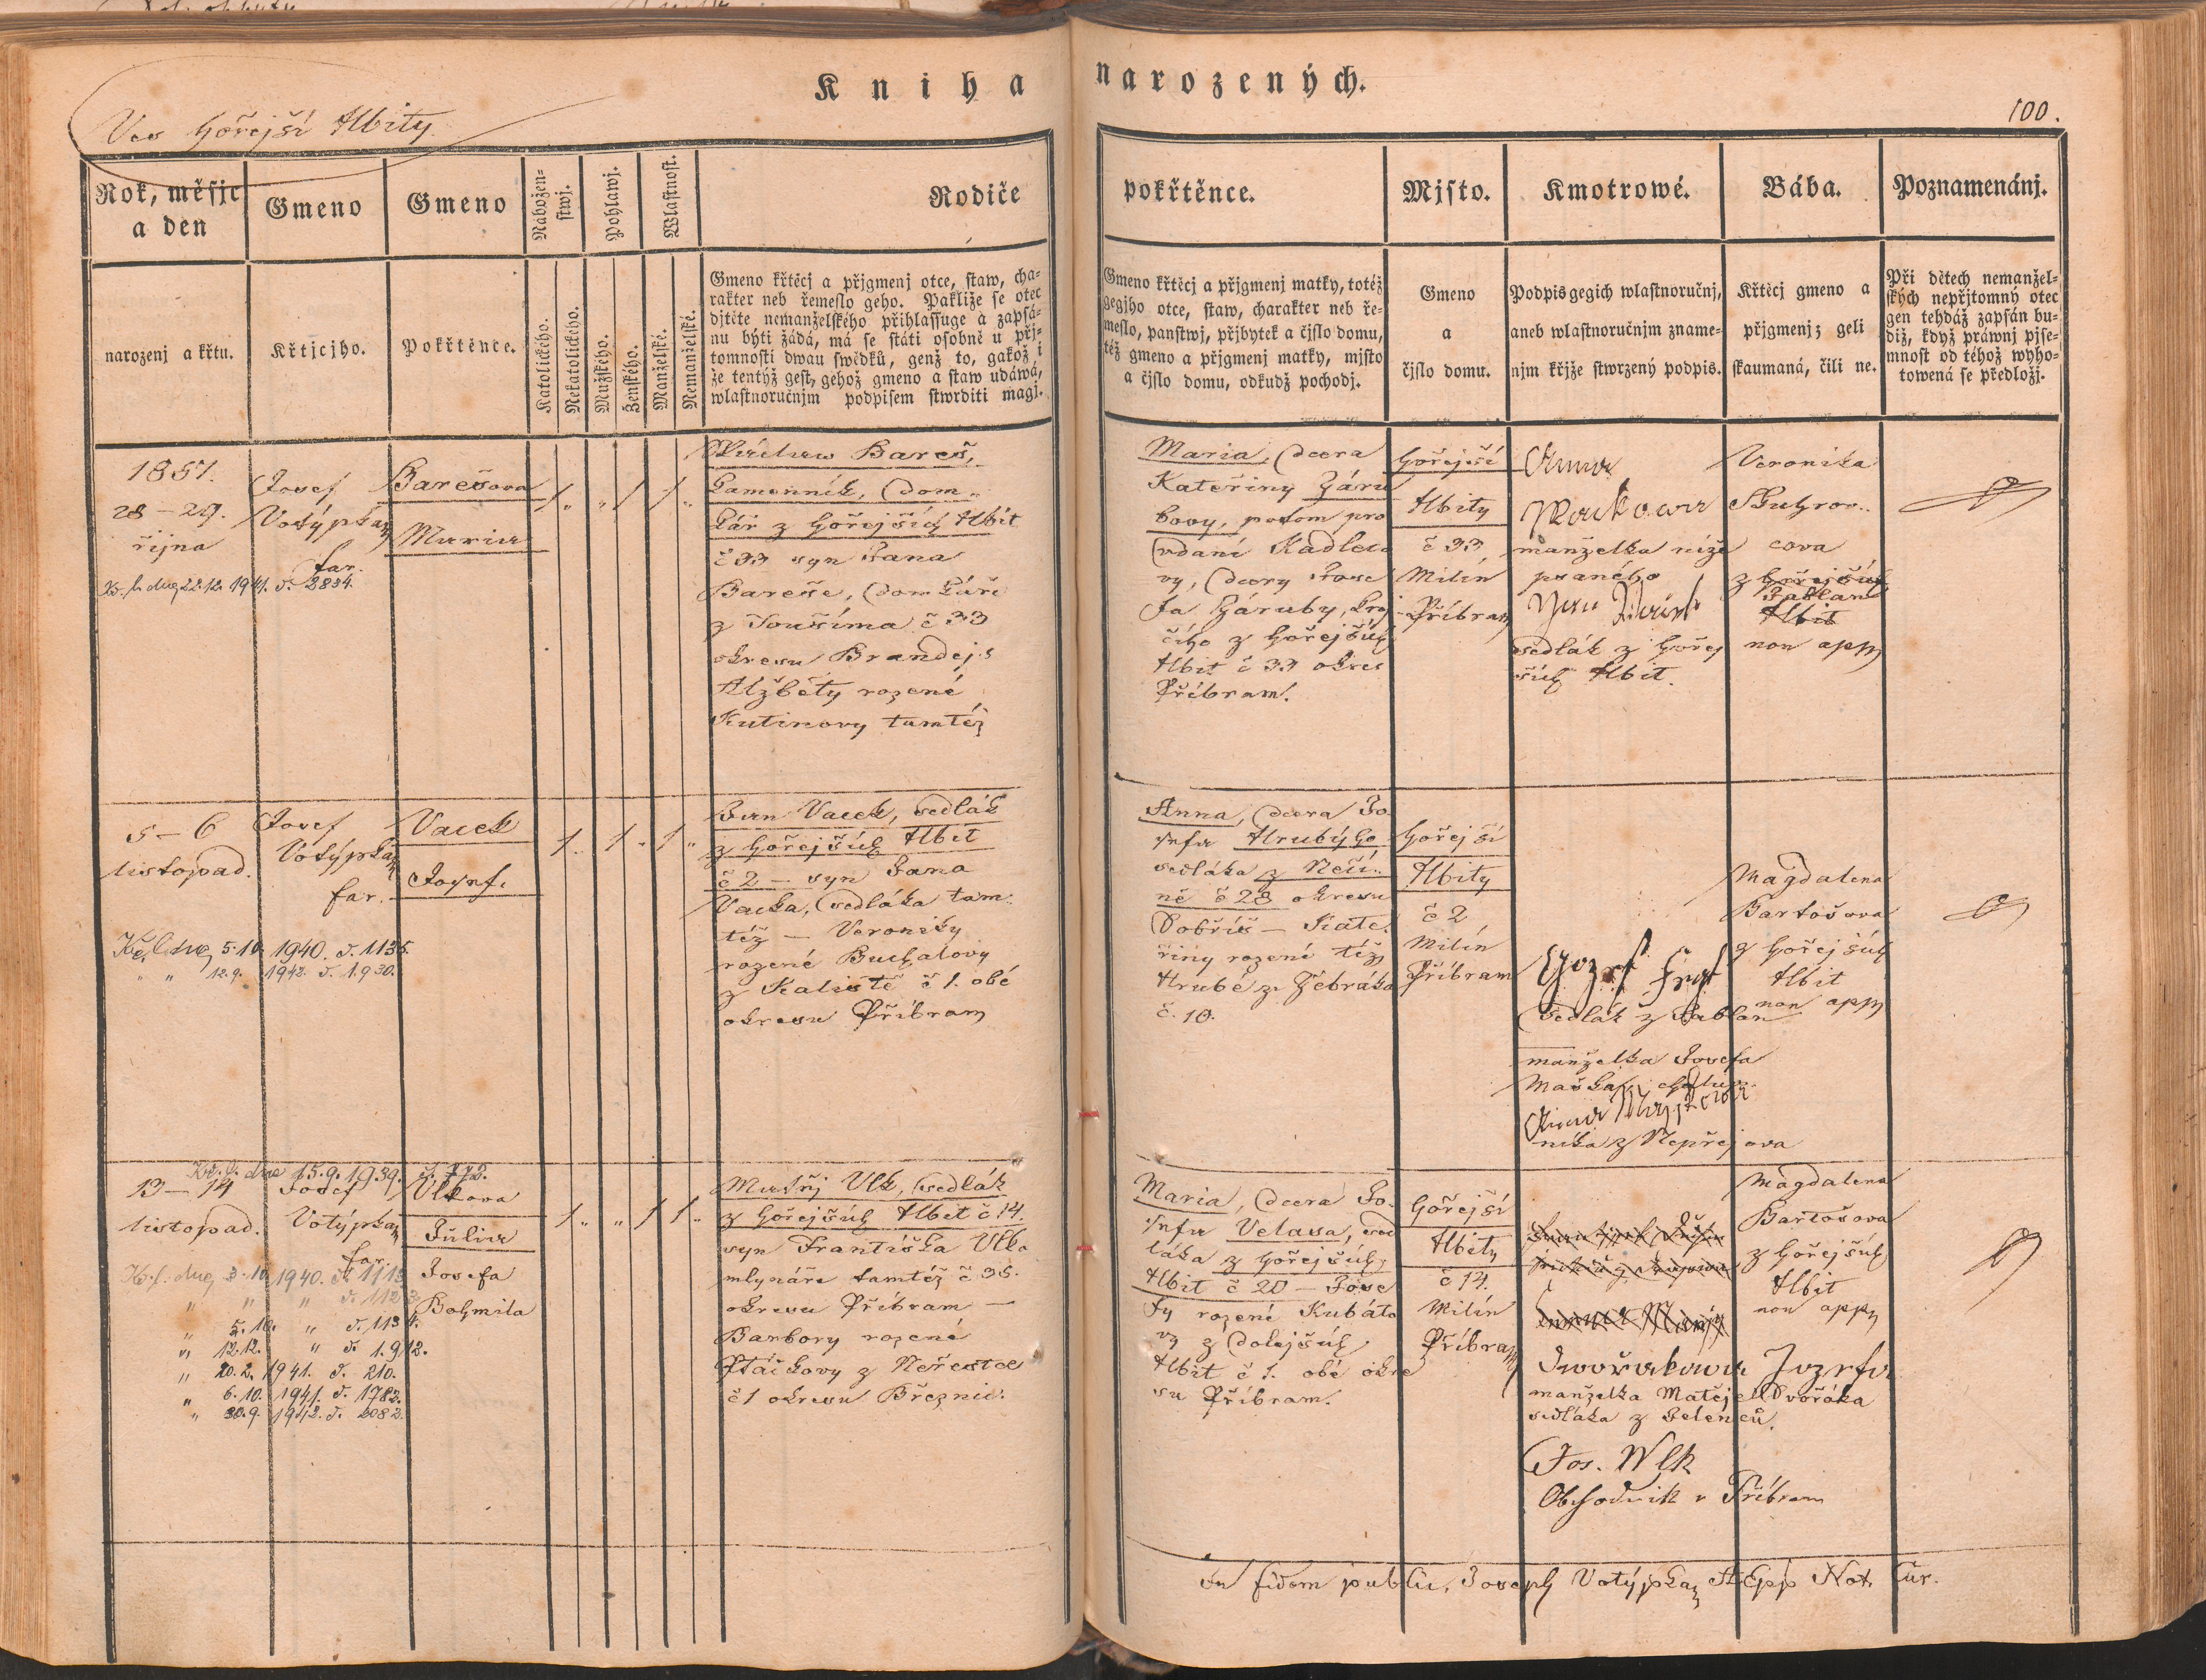 Kniha narozených.
Ves Hořejší Hbity
100.
Rok, měsjc
a den
narozenj a křtu.
Gmeno
Křtjcjho.
Gmeno
Pokřtěnce.
Nabožen-
stwj.
Pohlawj.
Wlastnost.
Katolického.
Nekatolického.
Mužského.
Ženského.
Manželské.
Nemanželské.
Rodiče
Gmeno křtěcj a přjgmenj otce, staw, cha-
rakter neb řemeslo geho. Pakliže se otec
djtěte nemanželského přihlassuge a zapsá-
nu býti žádá, má se státi osobně u přj-
tomnosti dwau swědků, genž to, gakož i
že tentýž gest, gehož gmeno a staw udáwá,
wlastnoručnjm podpisem stwrditi magj.
pokřtěnce.
Gmeno křtěcj a přjgmenj matky, totéž
gegjho otce, staw, charakter neb ře-
meslo, panstwj, přjbytek a čjslo domu,
též gmeno a přjgmenj matky, mjsto
a čjslo domu, odkudž pochodj.
Mjsto.
Gmeno
a
čjslo domu.
Kmotrowé.
Podpis gegich wlastnoručnj,
aneb wlastnoručnjm zname-
njm křjže stwrzený podpis.
Bába.
Křtěcj gmeno a
přjgmenj; geli
skaumaná, čili ne.
Poznamenánj.
Při dětech nemanžel-
ských nepřjtomný otec
gen tehdáž zapsán bu-
diž, když práwnj pjse-
mnost od téhož wyho-
towená se předložj.
1851.
28 – 29.
října
Kř. l. dne 22.12. 1941. č. 2834.
Josef
Votýpka
far.
Barešova
Maria
Václaw Bareš,
kamenník, dom-
kář z Hořejších Hbit
č 33 syn Jana
Bareše, domkáře
z Toušíma č 33
okresu Brandejs
Alžběty rozené
Kutinovy tamtéž
Maria, dcera
Kateřiny Záru
bovy, potom pro
vdaní Kadleco
vy, dcery Jose
fa Záruby, krej
čího z Hořejších
Hbit č 33 okres
Příbram.
Hořejší
Hbity
č 33
Milín
Příbram
Anna
manželka níže
psaného
sedlák z Hořej
ších Hbit.
Veronika
cova
z Hořejších
Hbit
non app
5 – 6
listopad.
Kř. l. dne 5.10. 1940. č. 1135.
" " 12.9. 1942. č. 1.930.
Josef
Votýpka
far.
Vacek
Josef.
Jan Vacek, sedlák
z Hořejších Hbit
č 2 – syn Jana
Vacka, sedláka tam-
též – Veroniky
rozené Buchalovy
z Kaliště č 1. obé
okresu Příbram
Anna, dcera Jo-
sefa Hrubýho
sedláka z Neči-
ně č 28 okresu
Dobříš – Kate-
řiny rozené též
Hrubé ze Žebráka
č. 10.
Hořejší
Hbity
č 2
Milín
Příbram
sedlák z Jablan
manželka Josefa
Maška
níka z Nepřejova
Magdalena
Bartošova
z Hořejších
Hbit
non app
Kř. l. dne 15.9. 1939. č. 772.
13 – 14
listopad.
Josef
Votýpka
far.
Vlkova
Julia
Josefa
Bohmila
Kř. l. dne 3.10. 1940. č. 1113
" " " č. 112
" 5.10. " č. 113
" 12.12. " č. 1.912.
" 20.2. 1941. č. 210.
" 6.10. 1941. č. 1782.
" 30.9. 1942. č. 2082.
Matěj Vlk, sedlák
z Hořejších Hbit č 14.
syn Františka Vlka
mlynáře tamtéž č 35.
okresu Příbram –
Barbory rozené
Ptáčkovy z Neřestce
č 1 okresu Březnic.
Maria, dcera Jo-
sefa Velasa, sed
láka z Hořejších
Hbit č 20 – Jose
fy rozené Kubáto
vy z Dolejších
Hbit č 1. obé okre
su Příbram.
Hořejší
Hbity
č 14.
Milín
Příbram
Dwořakowa Jozefa
manželka Matěje Dvořáka
sedláka z Jelenců.
Jos. Wlk
Obchodník v Příbram
Magdalena
Bartošova
z Hořejších
Hbit
non app
In fidem public. Joseph Votýpka Not. Cur.